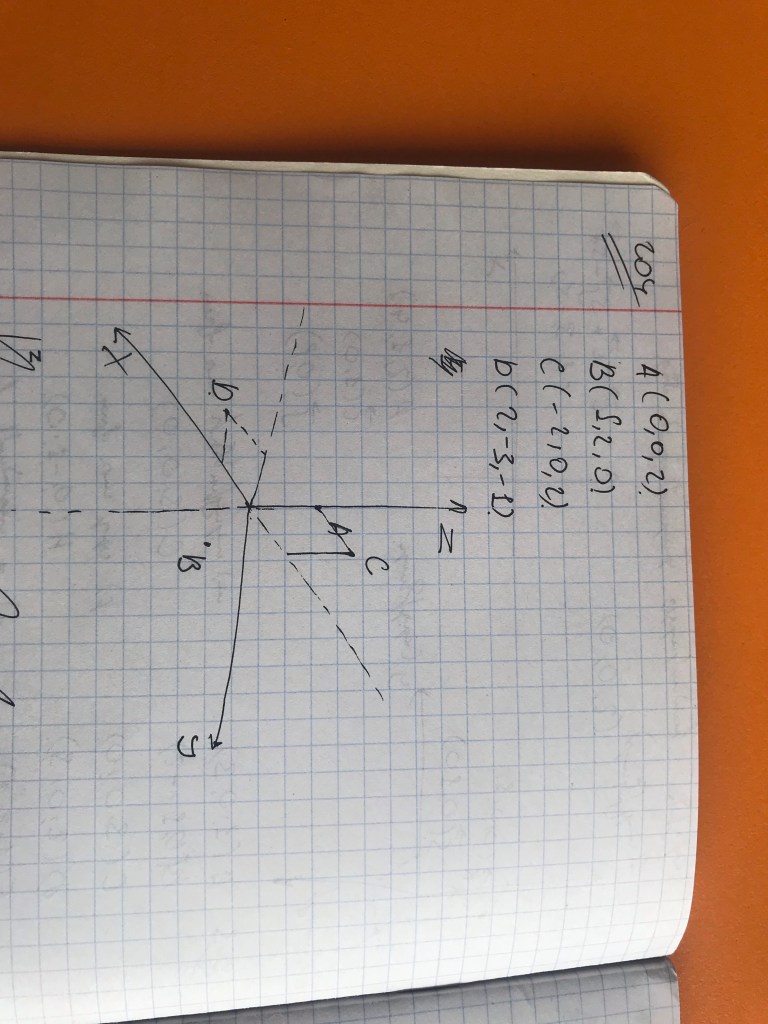 204
A (0,0,2)
B(5,2,0)
C(-2,0,2)
D(2,-3,-1)
Z
C
A
D
X
B
y